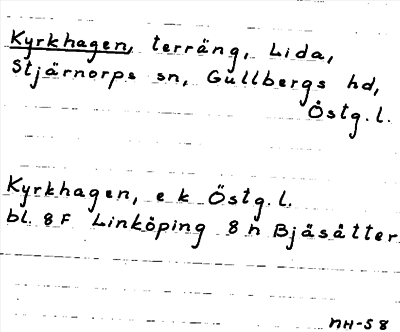 Kyrkhagen, terräng, Lida,
Stjärnorps sn, Gullbergs hd,
Östg. l.
Kyrkhagen, e k Östg. l.
bl. 8 F Linköping 8 n Bjäsätter
NH-58